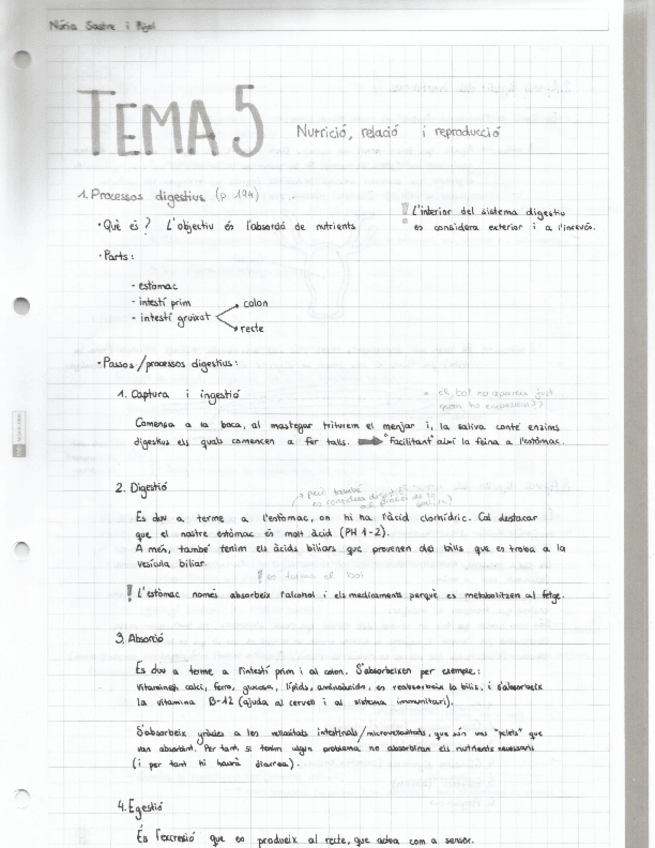 Núria Sastre i
TEMA 5 Nutrició, relació i reproducció
1. Processos digestius (p 194)
· Què és? L'objectiu és l'absorció de nutrients
! L'interior del sistema digestiu
es considera exterior i a l'inrevés.
· Parts:
- estómac
- intestí prim
- intestí gruixat
colon
recte
· Passos/processos digestius:
1. Captura i ingestió
* el bol no apareix just
quan ho
Comença a la boca, al mastegar triturem el menjar i, la saliva conté enzims
digestius els quals comencen a fer talls. → "Facilitant" així la feina a l'estómac.
2. Digestió
però també
es considera digestió
Es duu a terme a l'estómac, on hi ha l'àcid clorhídric. Cal destacar
que el nostre estómac és molt àcid (PH 1-2).
A més, també tenim els àcids biliars que provenen del bilis que es troba a la
vesícula biliar.
! es forma el bol
! L'estómac només absorbeix l'alcohol i els medicaments perquè es metabolitzen al fetge.
3. Absorció
Es duu a terme a l'intestí prim i al colon. S'absorbeixen per exemple:
vitamines, calci, ferro, glucosa, lípids, aminoàcids, es reabsorbeix la bilis, i s'absorbeix
la vitamina B-12 (ajuda al cervell i al sistema immunitari).
S'absorbeix gràcies a les vellositats intestinals/microvellositats, que són uns "pelets" que
van absorbint. Per tant, si tenim algun problema no absorbiran els nutrients necessaris
(i per tant hi haurà diarrea).
4. Egestió
És l'excreció que es produeix al recte, que actua com a sensor.